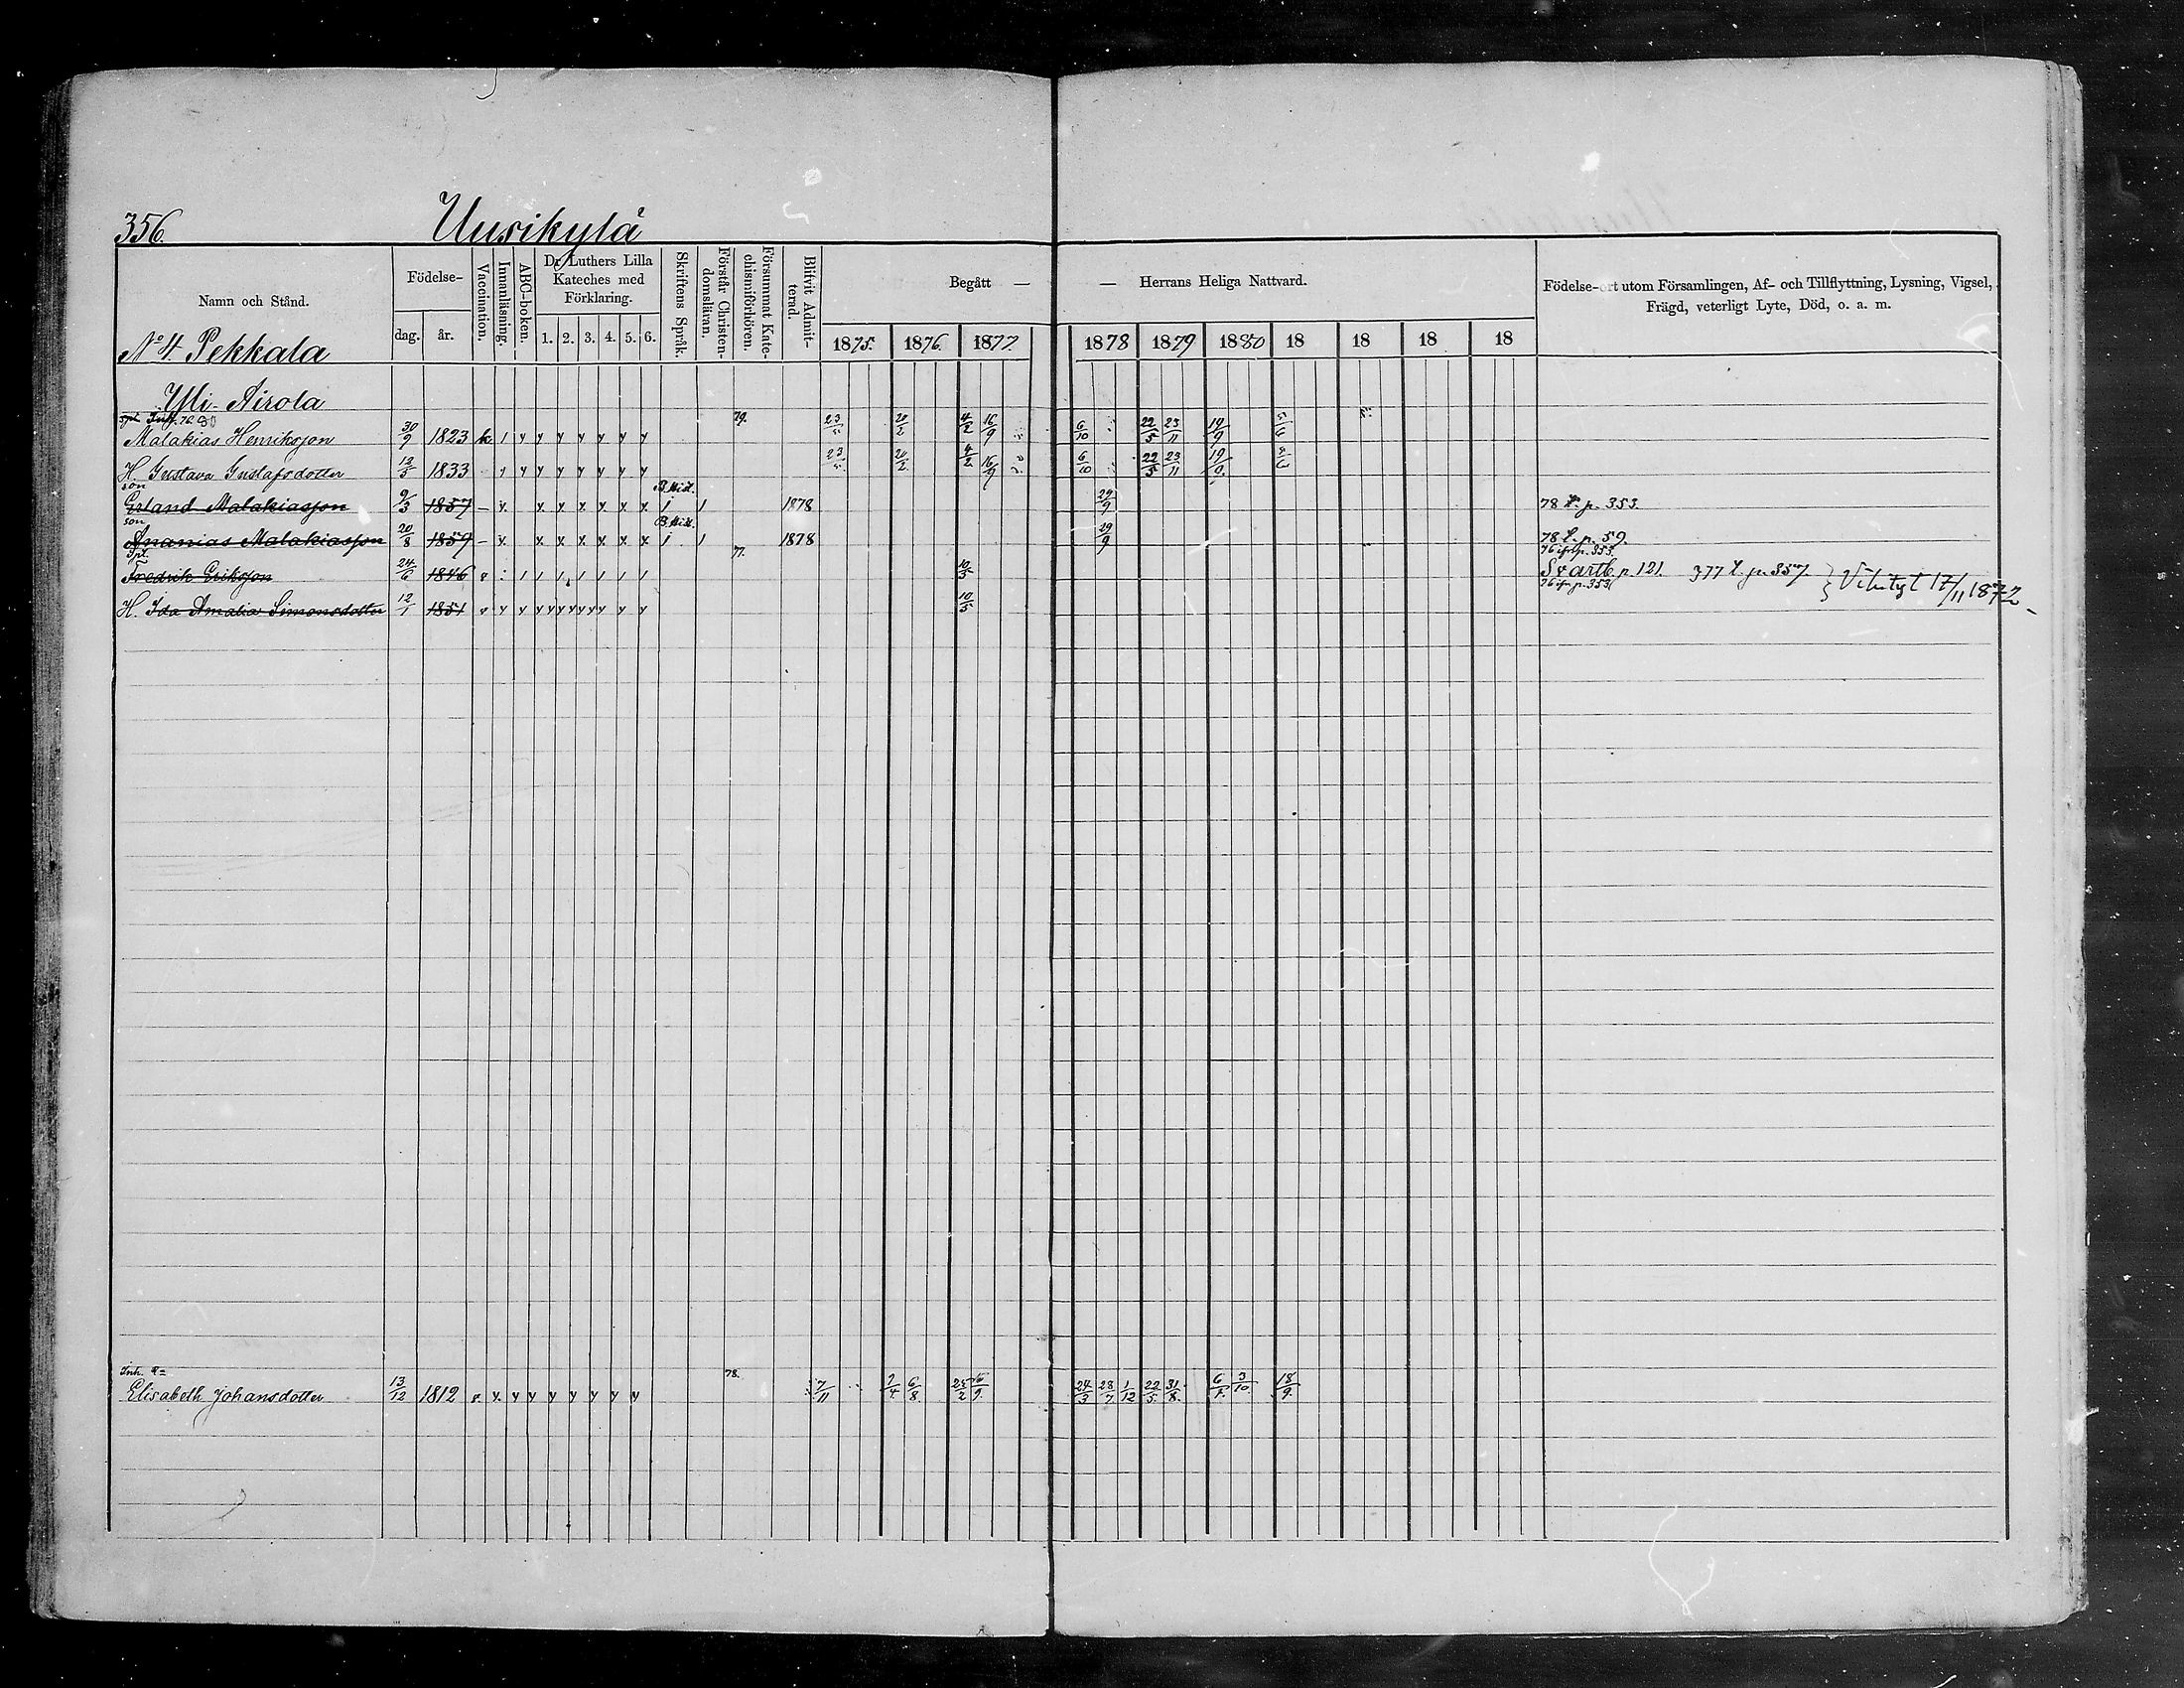 356. Uusikylä
Namn och Stånd. Födelse- dag. år. Vaccination. Innanläsning. ABC-boken. Dr Luthers Lilla Kateches med Förklaring. 1. 2. 3. 4. 5. 6. Skriftens Språk. Förstår Christendomsläran. Försummat Katechismiförhören. Blifvit Admitterad. Begått — — Herrans Heliga Nattvard. Födelse-ort utom Församlingen, Af- och Tillflyttning, Lysning, Vigsel, Frägd, veterligt Lyte, Död, o. a. m.
1875. 1876. 1877. 1878 1879 1880 18 18 18 18
No 4. Pekkala
Yli-Airola
79.
Malakias Henriksson 30/9 1823 k 1 y y y y y y y 23/5 20/2 4/2 16/9 6/10 22/5 23/11 19/9
H. Gustava Gustafsdotter 12/3 1833 y y y y y y y y 23/5 20/2 4/2 16/9 6/10 22/5 23/11
son B. hist.
Erland Malakiasson 9/3 1857 – x x x x x x x 1 1 1878 29/9 78 t. p. 353.
son B. hist.
Ananias Malakiasson 20/8 1859 – x x x x x x x 1 1 1878 29/9 78 t. p. 59.
77. 76 ifr. p. 353.
Fredrik Eriksson 24/6 1846 10/5 p. 121. 377 t. p. 357.
76 ifr. p. 353.
H. Ida Amalia Simonsdotter 12/1 1851 v y y y y y y y y 10/5 17/11 1872
Inh. 78.
Elisabeth Johansdotter 13/12 1812 x y y y y y y y 7/11 2/4 6/8 25/2 24/3 28/7 1/12 22/5. 31/8. 3/10 18/9.